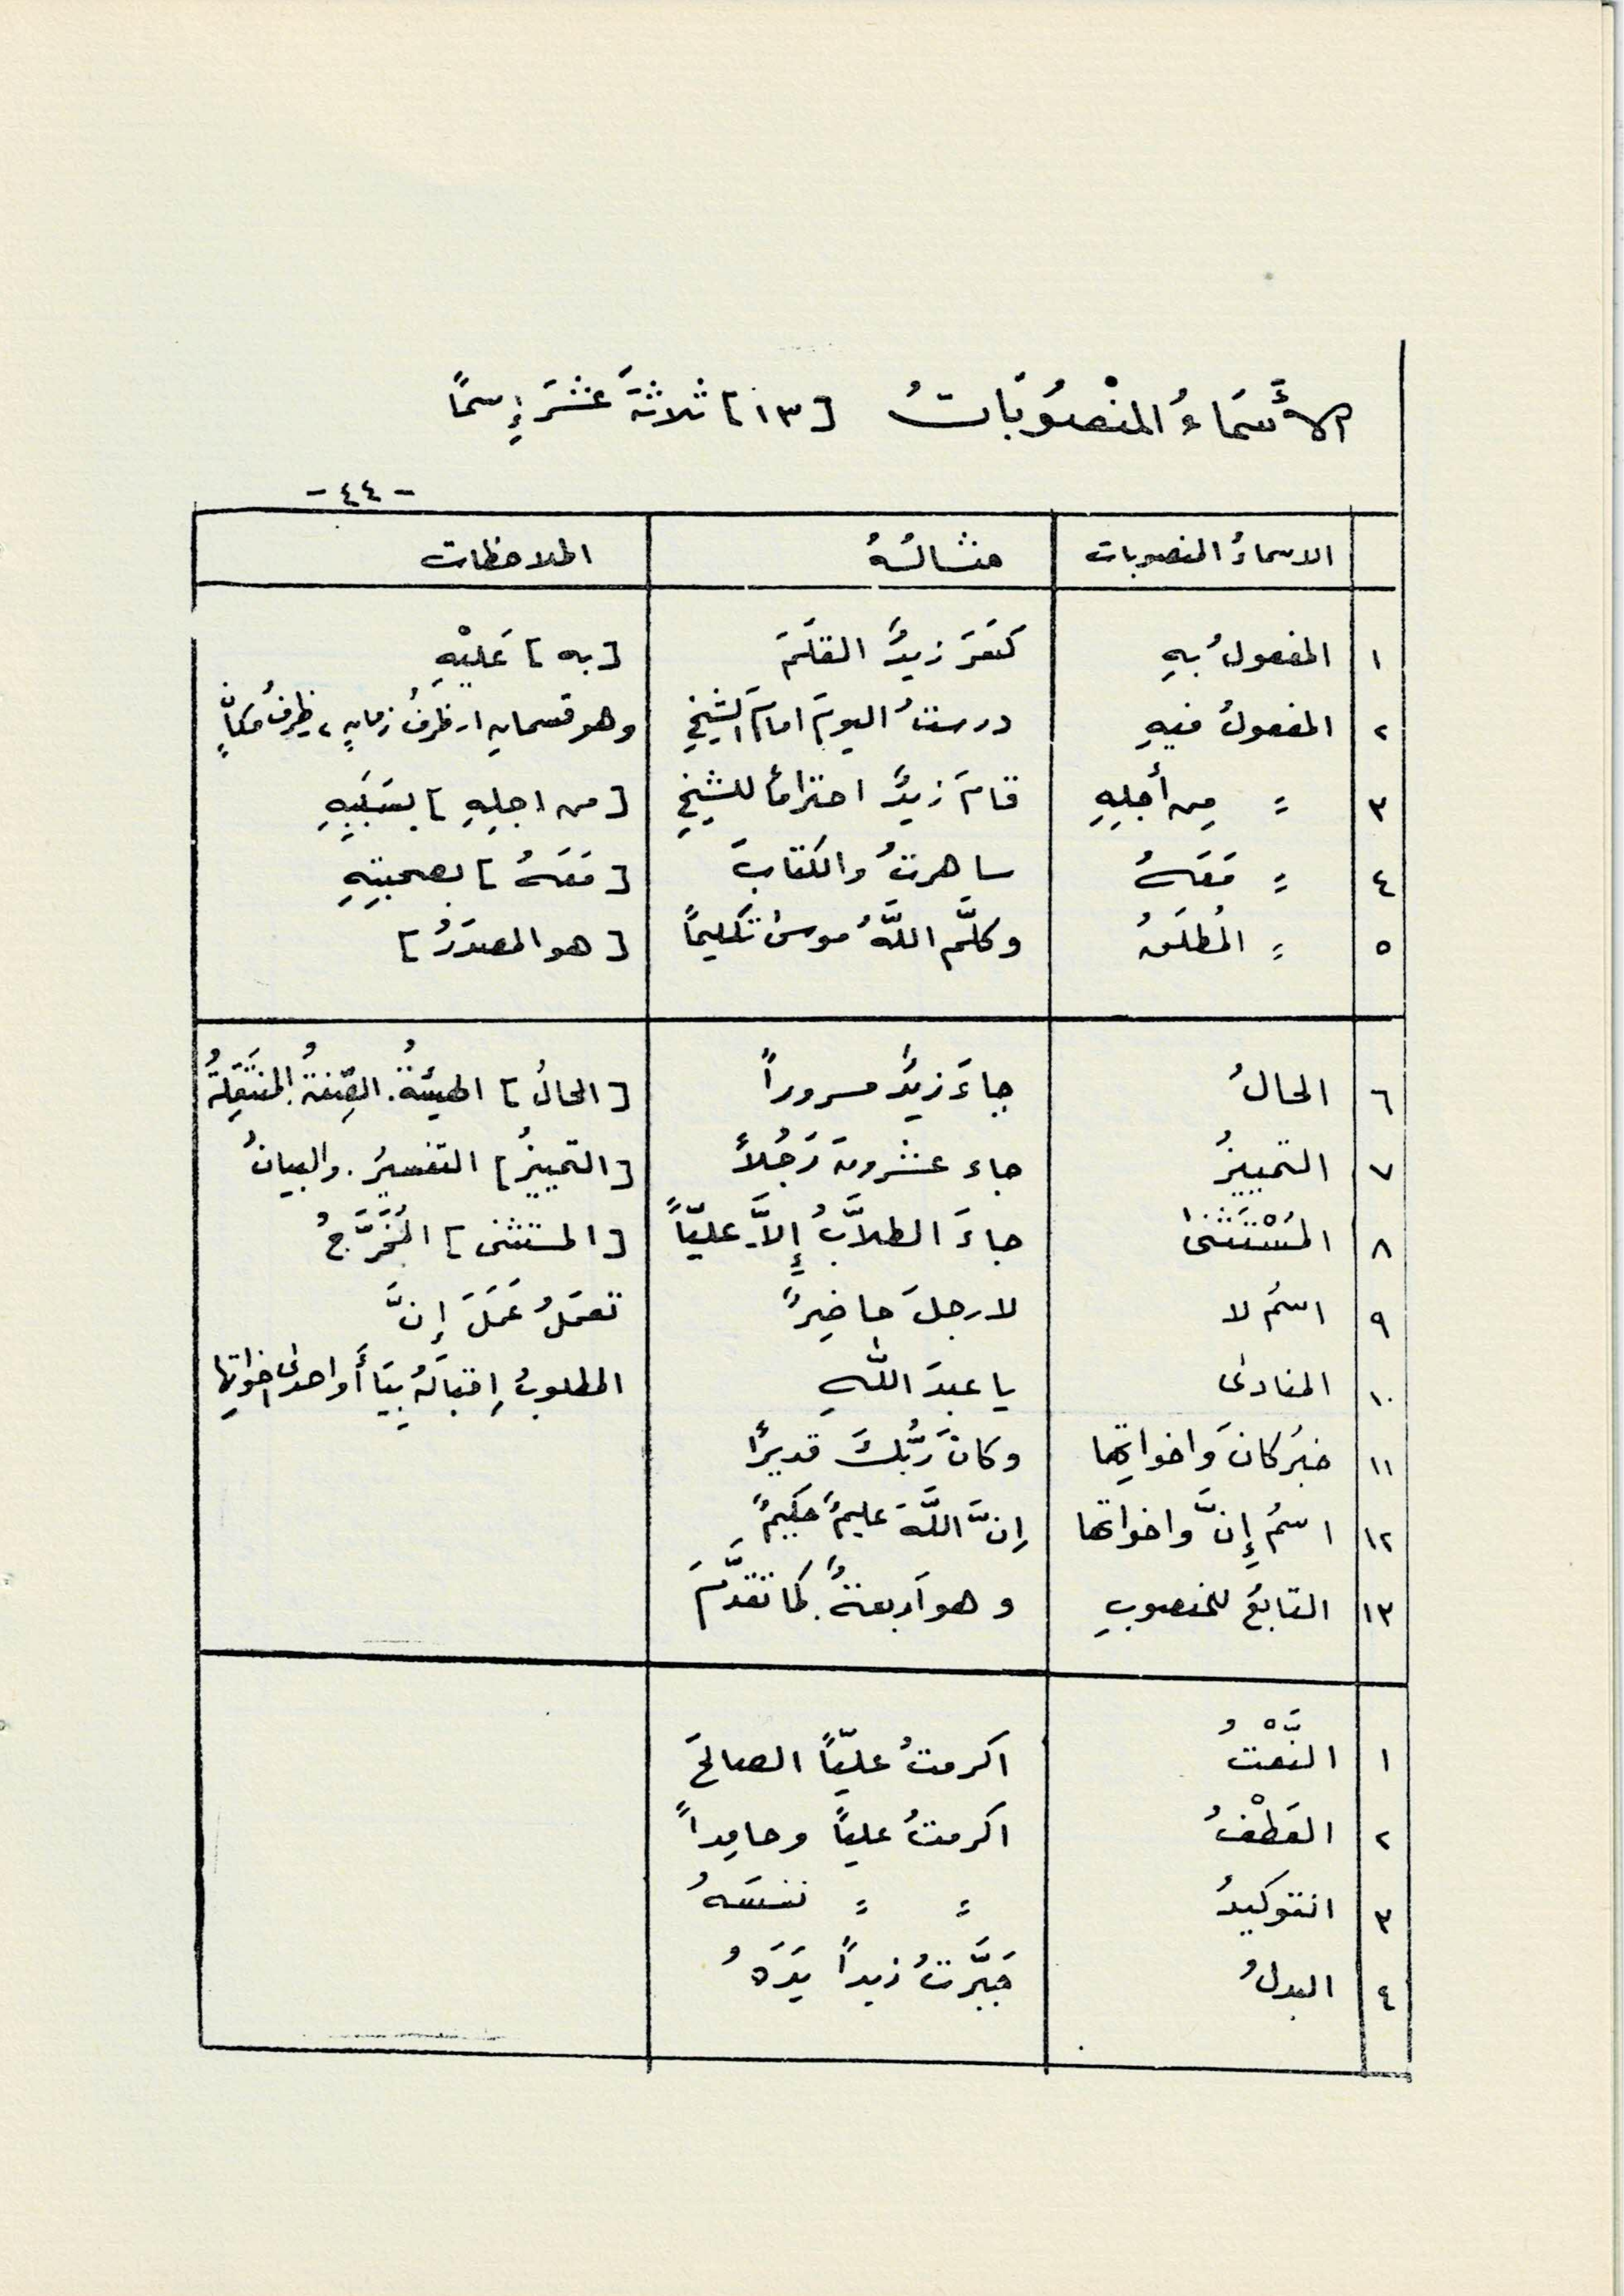 الأَسْمَاءُ المَنْصُوبَاتُ [١٣] ثلاثةَ عَشَرَ إِسمًا
-٤٤-
الاسماءُ المنصوبات مثالُهُ الملاحظات
١ المفعولُ بهِ كَسَرَ زيدٌ القلَمَ [به] عَليْهِ
٢ المفعولُ فيهِ درستُ اليومَ امامَ الشيخِ وهو قسمانِ ١ـ ظرفُ زمانٍ ٢ـ ظرفُ مكانٍ
٣ = مِن أجلِهِ قامَ زيدٌ احترامًا للشيخِ [من اجلِهِ] بسَبَبِهِ
٤ = مَعَهُ ساهرتُ والكتابَ [مَعَهُ] بصحبتِهِ
٥ = المُطلَقُ وكلَّم اللَّهُ موسىٰ تكليمًا [هو المصدَرُ]
٦ الحالُ جاءَ زيدٌ مسروراً [الحالُ] الهيئةُ. الصِّفةُ. المنتَقِلةُ
٧ التمييزُ جاء عشرونَ رَجُلاً [التمييزُ] التفسيرُ. والبيانُ
٨ المُسْتَثنىٰ جاءَ الطلاَّبُ إِلاَّ عليّاً [المستثنى] المُخَرَّجُ
٩ اسمُ لا لا رجلَ حاضِرٌ تعمَلُ عَمَلَ إِنَّ
١٠ المنادىٰ يا عبدَ اللّٰهِ المطلوبُ إقبالُهُ بيَا أَو احدىٰ اخواتِها
١١ خبرُ كانَ وَاخواتِها وكانَ رَبُّكَ قديرًا
١٢ اسمُ إِنَّ واخواتها إنَّ اللَّهَ عليمٌ حَكِيمٌ
١٣ التابعُ للمنصوبِ وهو أربعةٌ. كما تقدَّمَ
١ النَّعْتُ اكرمتُ عليّاً الصالحَ
٢ العَطْفُ اكرمتُ علياً وحامِداً
٣ التوكيدُ = = نفسَهُ
٤ البدلُ جَبَّرتُ زيداً يَدَهُ